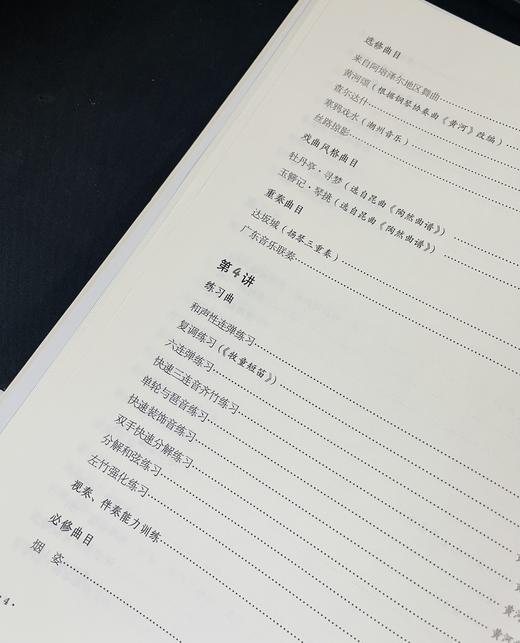 选修曲目
来自阿塔泽尔地区舞曲
黄河颂（根据钢琴协奏曲《黄河》改编）
查尔达什
寒鸦戏水（潮州音乐）
丝路掠影
戏曲风格曲目
牡丹亭·寻梦（选自昆曲《陶然曲谱》）
玉簪记·琴挑（选自昆曲《陶然曲谱》）
重奏曲目
达坂城（扬琴三重奏）
广东音乐联奏
第4讲
练习曲
和声性连弹练习
复调练习（《牧童短笛》）
六连弹练习
快速三连音齐竹练习
单轮与琶音练习
快速装饰音练习
双手快速分解练习
分解和弦练习
左竹强化练习
视奏、伴奏能力训练
必修曲目
烟 姿
黄
黄河
黄河
·4·